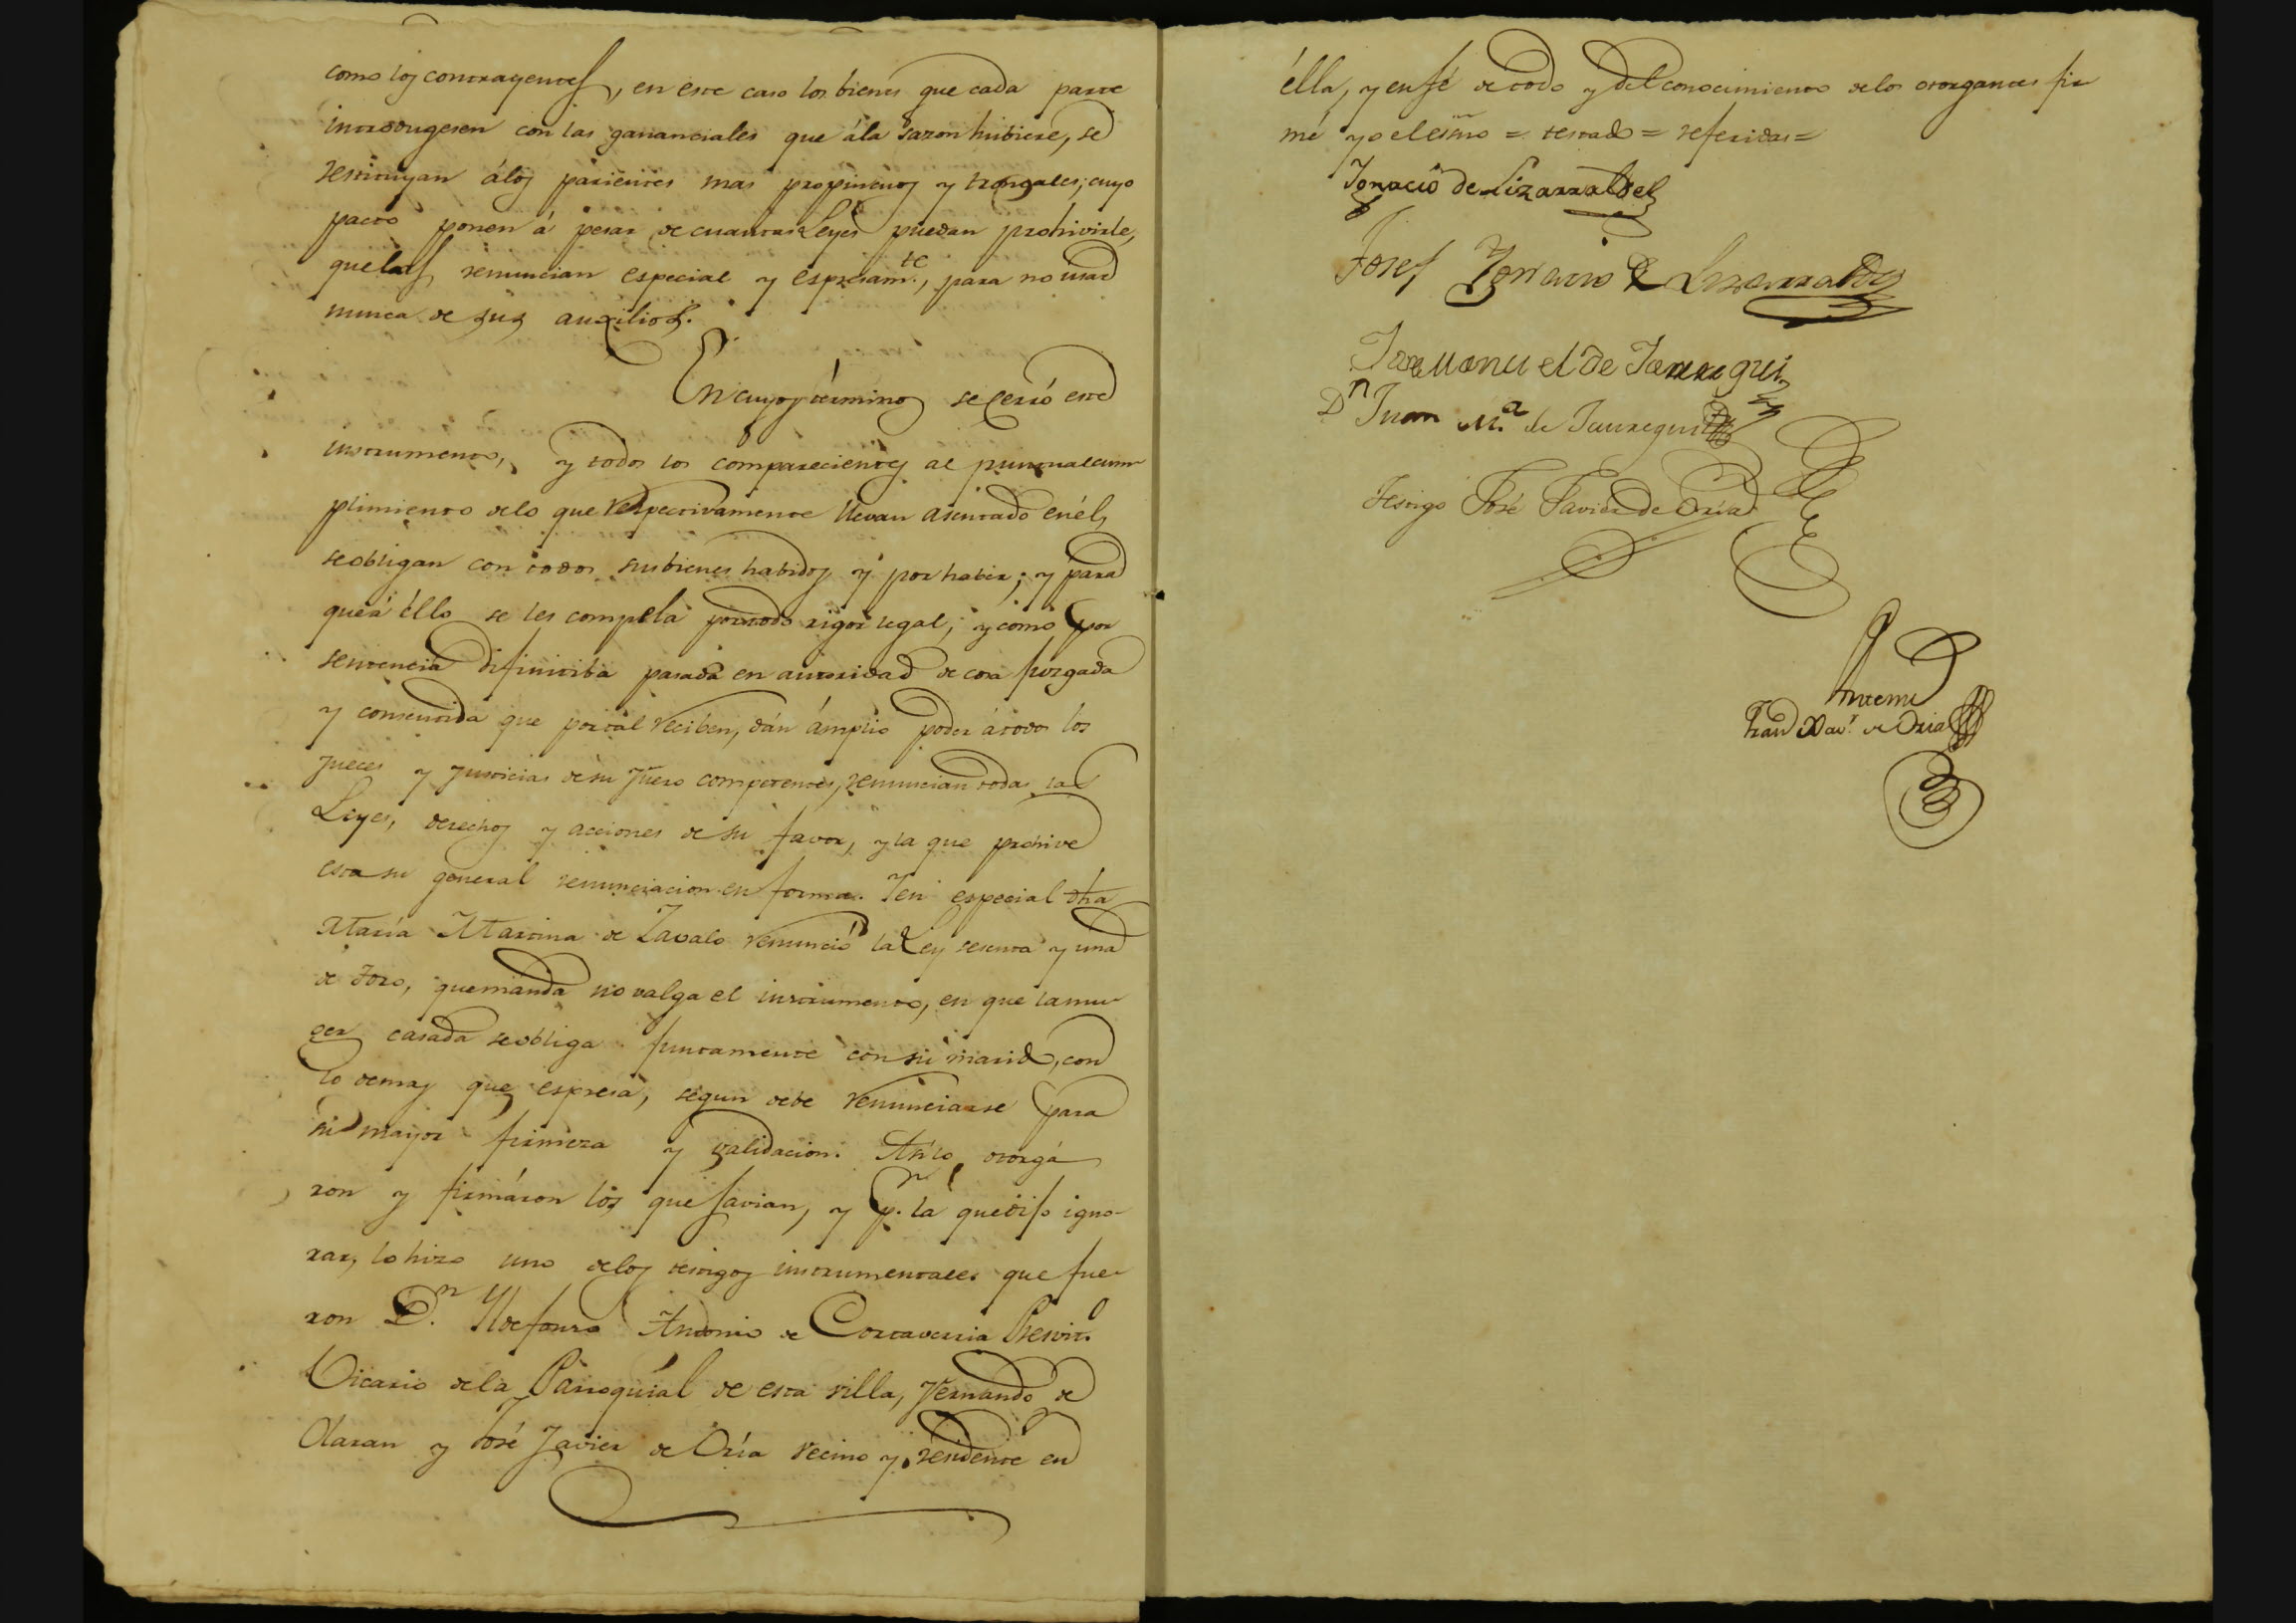 como los contrayentes, en este caso los bienes que cada parte
introdugesen con las gananciales que á la sazon hubiere, se
restituyan á los parientes mas propincuos y trongales; cuyo
pacto ponen á pesar de cuantas Leyes puedan prohivirle,
que las renuncian especial y espresam.te, para no usar
nunca de sus auxilios.
En cuyos términos se cerró este
instrumento, y todos los comparecientes al puntual cum-
plimiento de lo que respectivamente llevan asentado en él,
se obligan con todos sus bienes habidos y por haber; y para
que á éllo se les compela por todo rigor legal, y como por
sentencia difinitiba pasada en autoridad de cosa juzgada
y consentida que por tal reciben, dán ámplio poder á todos los
Jueces y Justicias de su fuero competentes, renuncian todas las
Leyes, derechos y acciones de su favor, y la que prohive
esta su general renunciacion en forma. Y en especial dha
María Martina de Zavalo renunció la Ley sesenta y una
de Toro, que manda no valga el instrumento, en que la mu-
ger casada se obliga juntamente con su marido, con
lo demas que espresa, segun debe renunciarse para
su mayor firmeza y validacion. Así lo otorgá
ron y firmáron los que savian, y p.r la que dijo igno-
rar, lo hizo uno de los testigos instrumentales que fue-
ron D.n Yldefonso Antonio de Cortaverria Presvit.o
Vicario de la Parroquial de esta villa, Fernando de
Olaran y José Javier de Oria vecino y residente en
élla, y en fé de todo y del conocimiento de los otorgantes fir
mé yo el esno = testado = referidas =
Ignacio de Lizarralde
Josef Ygnacio de Lizarralde
Jose Manuel de Jauregui
Dn Juan M.a de Jauregui
Testigo José Javier de Oria
Antemi
Fran.co Xav.r de Oria